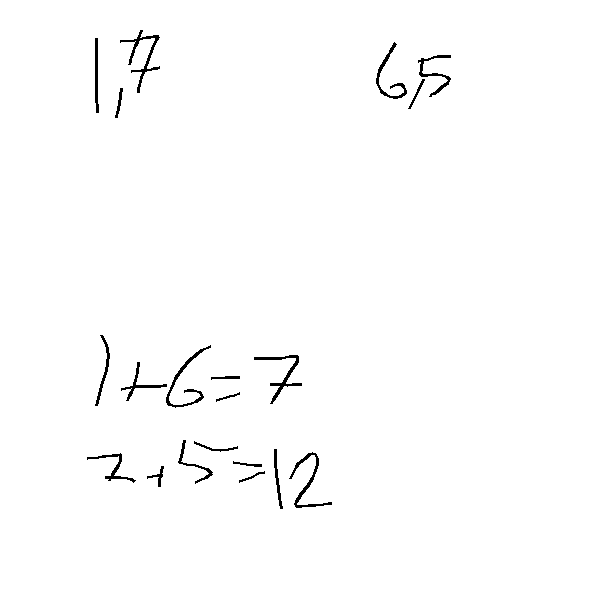 1,7 6,5
1+6=7
7+5=12